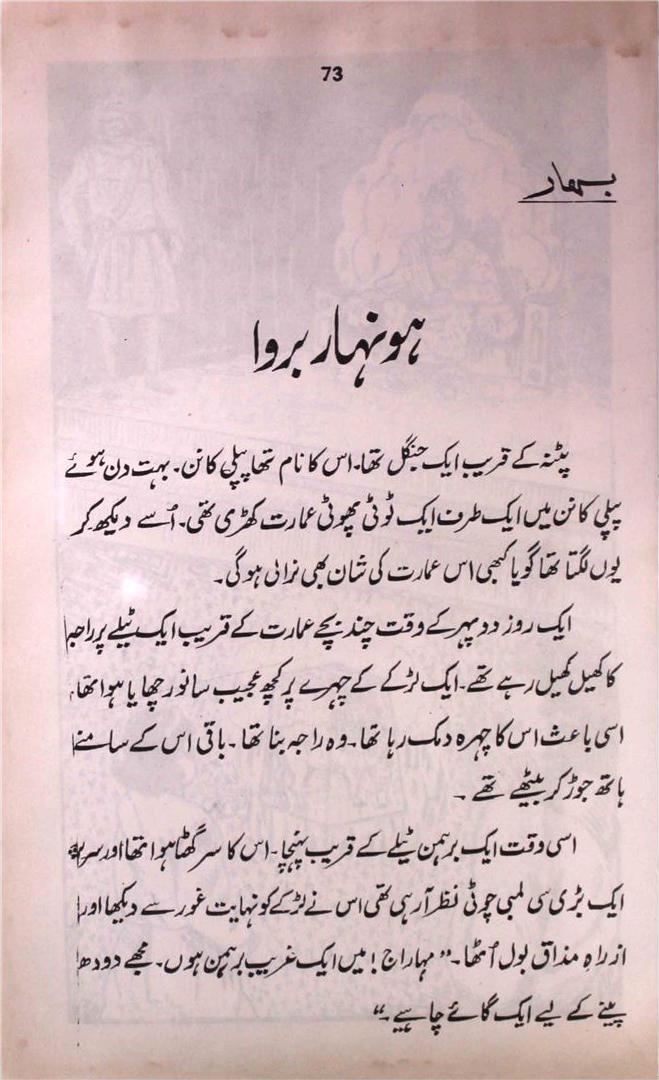 73
بہار
ہونہار بروا
پٹنہ کے قریب ایک جنگل تھا۔ اس کا نام تھا پپلی کانن۔ بہت دن ہوئے
پپلی کانن میں ایک طرف ایک ٹوٹی پھوٹی عمارت کھڑی تھی۔ اُسے دیکھ کر
یوں لگتا تھا گویا کبھی اس عمارت کی شان بھی نرالی ہوگی۔
ایک روز دوپہر کے وقت چند بچے عمارت کے قریب ایک ٹیلے پر راجہ
کا کھیل کھیل رہے تھے۔ ایک لڑکے کے چہرے پر کچھ عجیب سا نور چھایا ہوا تھا،
اسی باعث اس کا چہرہ دمک رہا تھا۔ وہ راجہ بنا تھا۔ باقی اس کے سامنے
ہاتھ جوڑ کر بیٹھے تھے۔
اسی وقت ایک برہمن ٹیلے کے قریب پہنچا۔ اس کا سر گھٹا ہوا تھا اور سر پر
ایک بڑی سی لمبی چوٹی نظر آرہی تھی اس نے لڑکے کو نہایت غور سے دیکھا اور
ازراہِ مذاق بول اُٹھا۔ ”مہاراج! میں ایک غریب برہمن ہوں۔ مجھے دودھ
پینے کے لیے ایک گائے چاہیے۔“